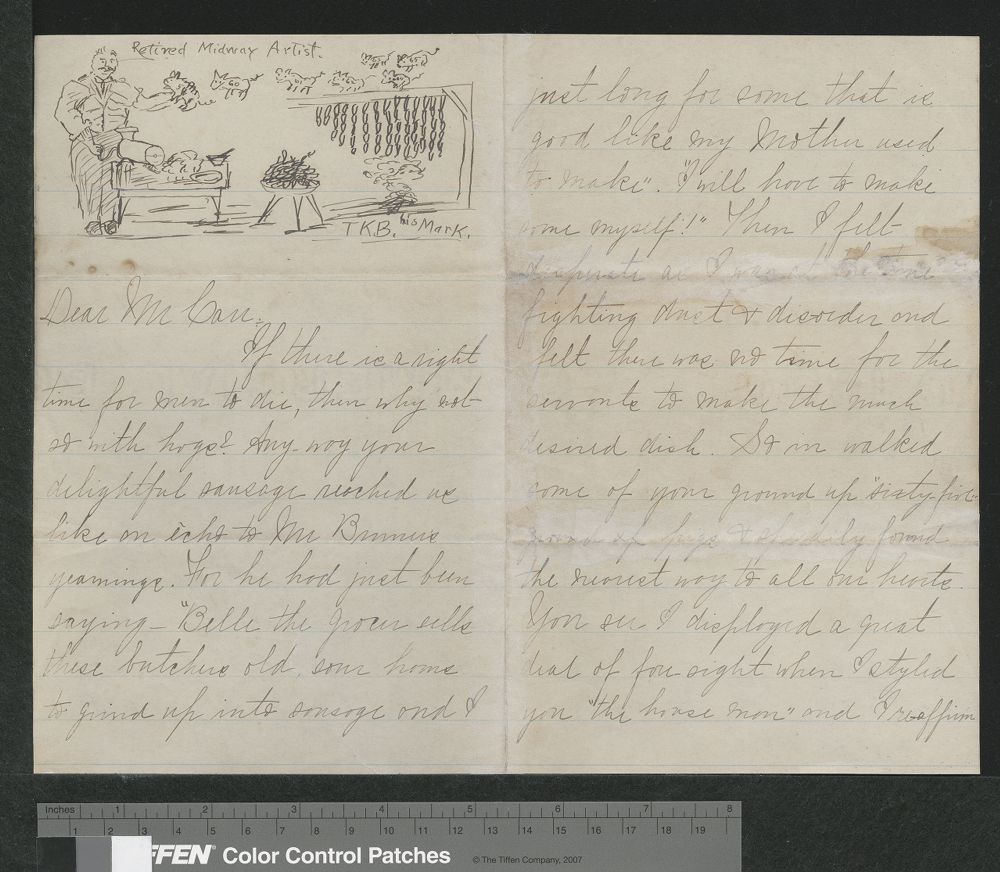 Retired Midway Artist.
T.K.B. his Mark.
Dear Mr Carr:
If there is a right
time for men to die, then why not
so with hogs? Any-way your
delightful sausage reached us
like an echo to Mr Bruners
yearnings. For he had just been
saying - "Belle the grocer sells
these butchers old, sour hams
to grind up into sausage and I
just long for some that is
good like my Mother used
to make". "I will have to make
some myself!" Then I felt
desperate as I was at the time
fighting dust & disorder and
felt there was no time for the
servants to make the much
desired dish. So in walked
some of your ground up "sixty-five
of hogs & speedily found
the nearest way to all our hearts.
You see I displayed a great
deal of fore-sight when I styled
you "the house man" and I reaffirm
Inches 1 2 3 4 5 6 7 8
1 2 3 4 5 6 7 8 9 10 11 12 13 14 15 16 17 18 19
FFEN® Color Control Patches © The Tiffen Company, 2007